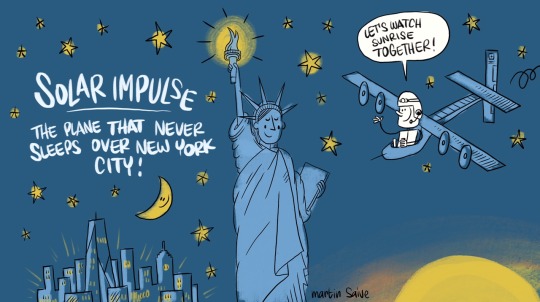 SOLAR IMPULSE
THE PLANE THAT NEVER
SLEEPS OVER NEW YORK
CITY!
LET'S WATCH
SUNRISE
TOGETHER!
martin Saive